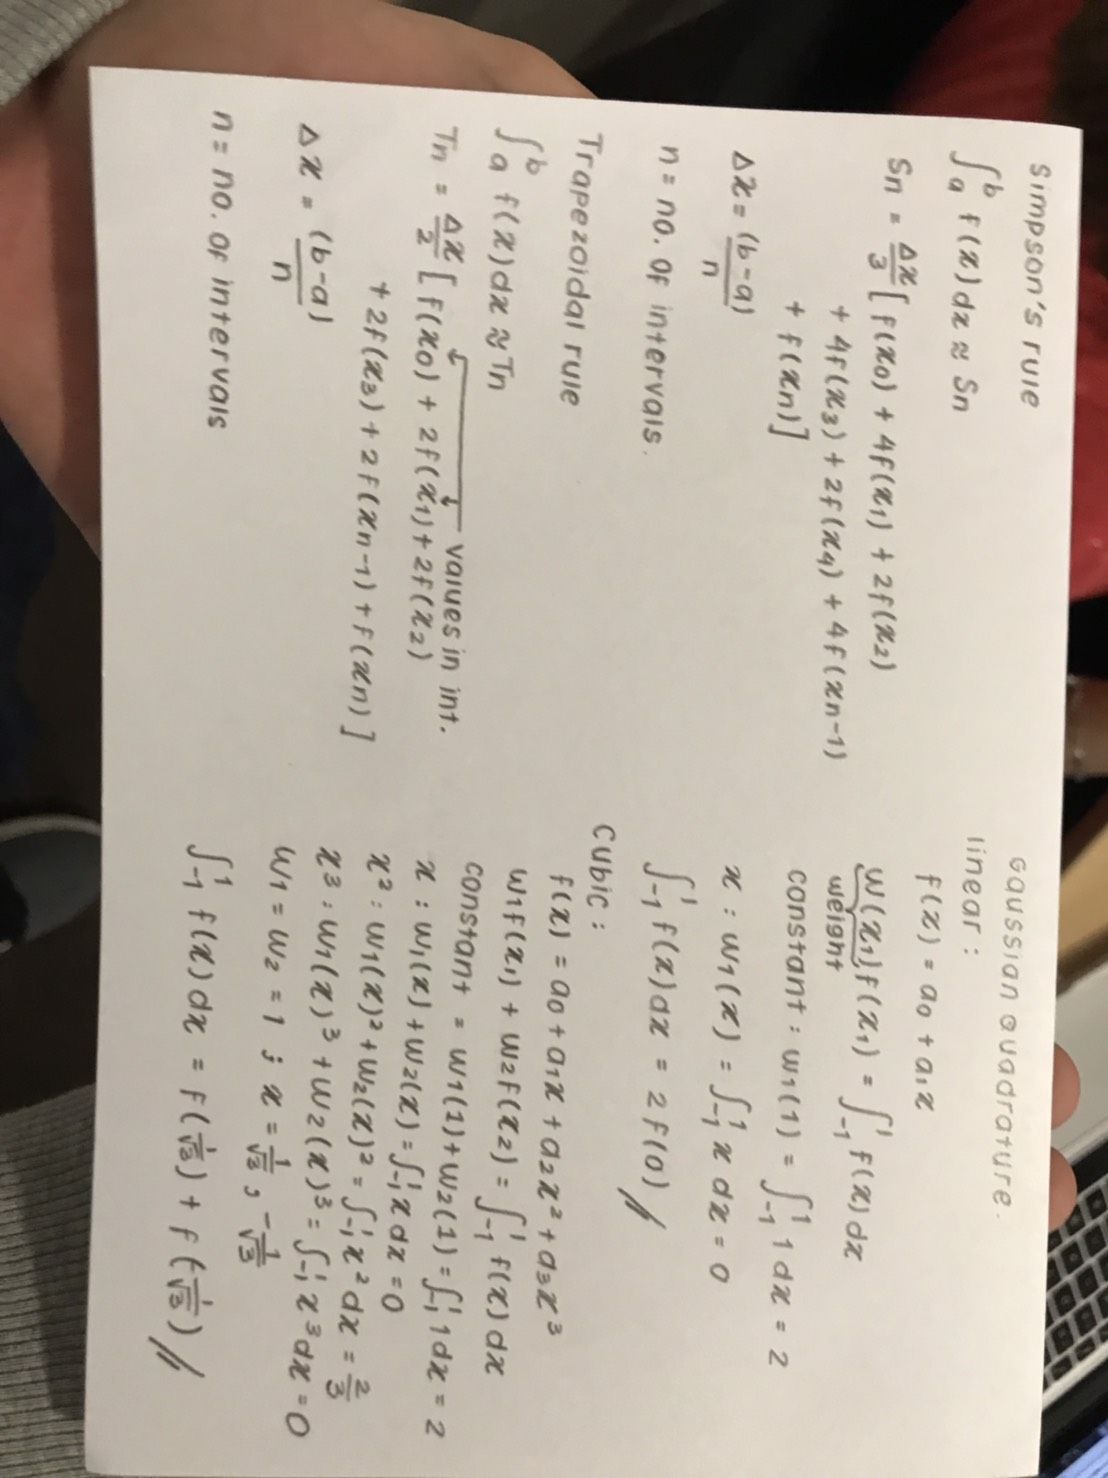 Simpson's rule
∫_a^b f(x)dx ≈ Sn
Sn = Δx/3 [f(x0) + 4f(x1) + 2f(x2)
+ 4f(x3) + 2f(x4) + 4f(xn-1)
+ f(xn)]
Δx = (b-a)/n
n = no. of intervals.
Trapezoidal rule
∫_a^b f(x)dx ≈ Tn
values in int.
Tn = Δx/2 [f(x0) + 2f(x1) + 2f(x2)
+ 2f(x3) + 2f(xn-1) + f(xn)]
Δx = (b-a)/n
n = no. of intervals
Gaussian Quadrature.
linear :
f(x) = a0 + a1x
w(x1)f(x1) = ∫_-1^1 f(x)dx
weight
constant : w1(1) = ∫_-1^1 1 dx = 2
x : w1(x) = ∫_-1^1 x dx = 0
∫_-1^1 f(x)dx = 2f(0) //
Cubic :
f(x) = a0 + a1x + a2x² + a3x³
w1f(x1) + w2f(x2) = ∫_-1^1 f(x)dx
constant = w1(1) + w2(1) = ∫_-1^1 1dx = 2
x : w1(x) + w2(x) = ∫_-1^1 x dx = 0
x² : w1(x)² + w2(x)² = ∫_-1^1 x² dx = 2/3
x³ : w1(x)³ + w2(x)³ = ∫_-1^1 x³dx = 0
w1 = w2 = 1 ; x = 1/√3 , -1/√3
∫_-1^1 f(x)dx = f(1/√3) + f(-1/√3) //